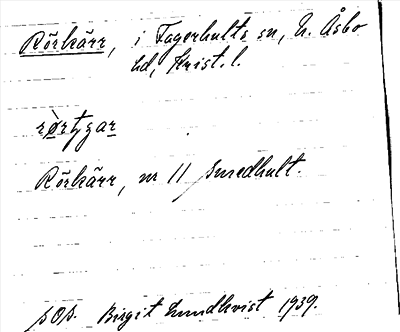 Rörkärr, i Fagerhults sn, N. Åsbo
hd, Krist. l.
Rörkärr, nr 11 Smedhult.
sOp. Birgit Lundkvist 1939.